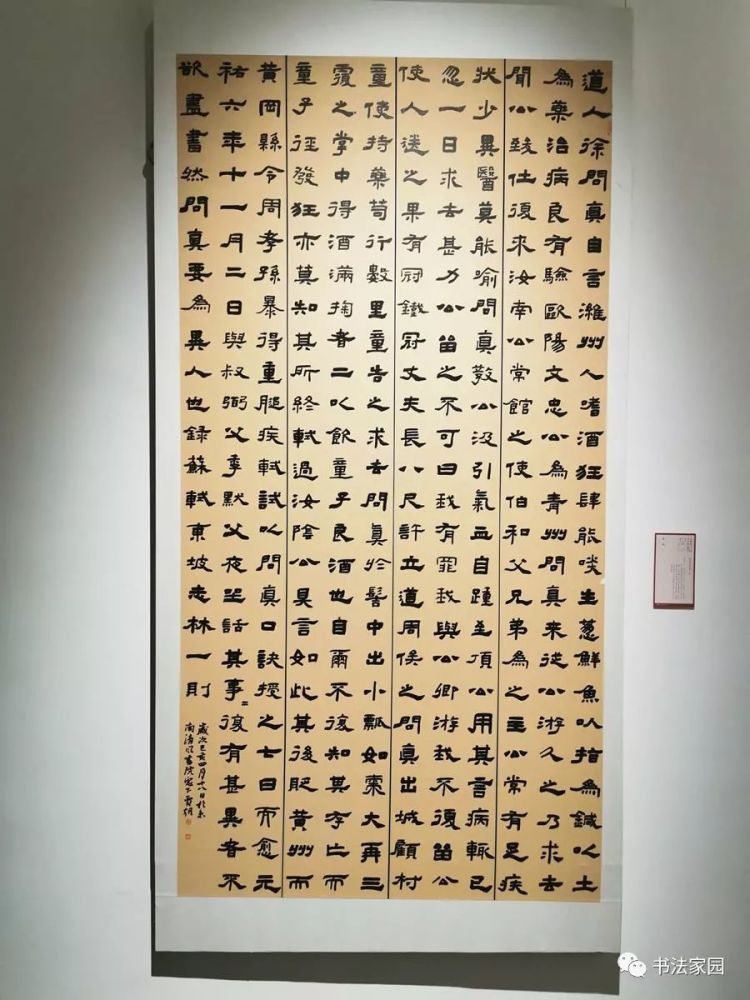 道人徐問真自言濰州人嗜酒狂肆能啖生蔥鮮魚以指為鍼以土
為藥治病良有驗歐陽文忠公為青州問真來從公游久之乃求去
聞公致仕復來汝南公常館之使伯和父兄弟為之主公常有足疾
狀少異醫莫能喻問真教公汲引氣血自踵至頂公用其言病輒已
忽一日求去甚力公留之不可曰我有罪我與公卿游我不復留公
使人送之果有冠鐵冠丈夫長八尺許立道周俟之問真出城顧村
童使持藥笥行數里童告之求去問真於髻中出小瓢如棗大再三
覆之掌中得酒滿掬者二以飲童子良酒也自爾不復知其存亡而
童子徑發狂亦莫知其所終軾過汝陰公具言如此其後肥黃州而
黃岡縣令周孝孫暴得重膇疾軾試以問真口訣授之七日而愈元
祐六年十一月二日與叔弼父季默父夜坐話其事〻復有甚異者不
欲盡書然問真要為異人也錄蘇軾東坡志林一則
歲次己亥四月十八日於京
书法家园